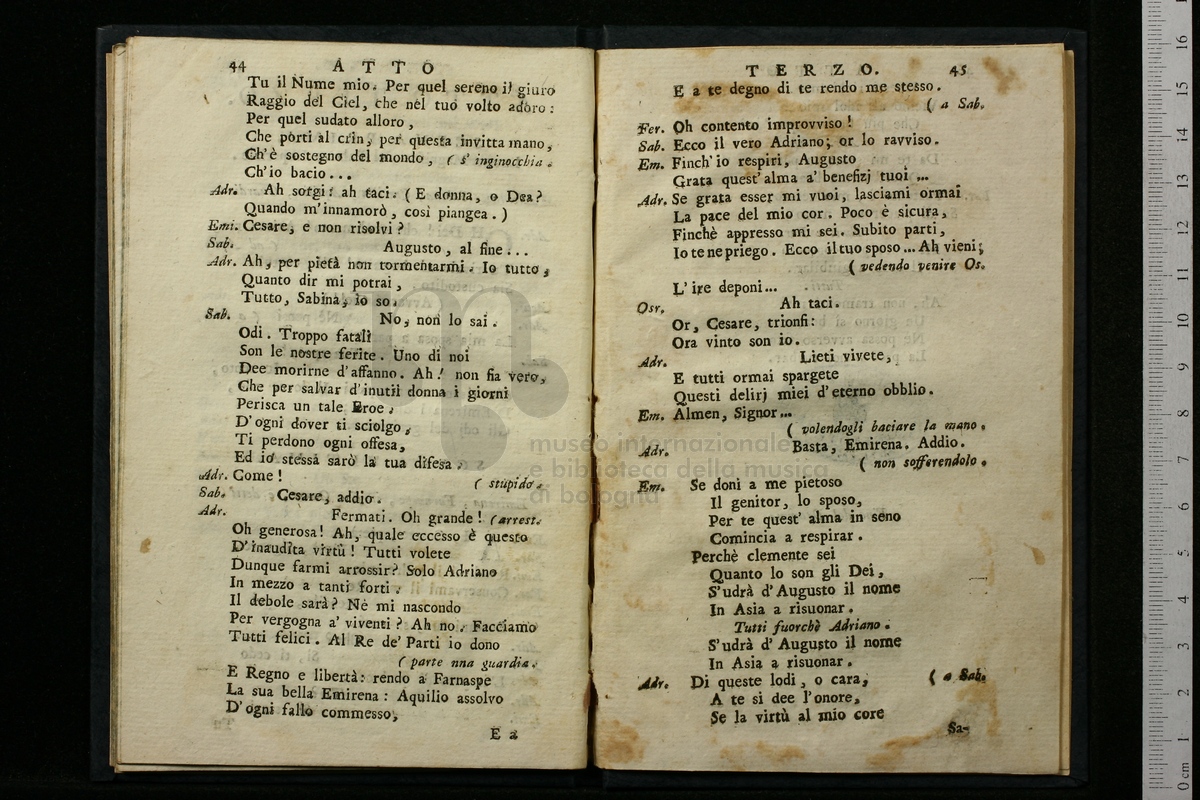 44 A T T O
Tu il Nume mio. Per quel sereno il giuro
Raggio del Ciel, che nel tuo volto adoro:
Per quel sudato alloro,
Che porti al crin, per questa invitta mano,
Ch'è sostegno del mondo, ( s' inginocchia.
Ch'io bacio...
Adr. Ah sorgi: ah taci. ( E donna, o Dea?
Quando m'innamorò, così piangea. )
Emi. Cesare, e non risolvi?
Sab. Augusto, al fine...
Adr. Ah, per pietà non tormentarmi. Io tutto,
Quanto dir mi potrai,
Tutto, Sabina, io so.
Sab. No, non lo sai.
Odi. Troppo fatali
Son le nostre ferite. Uno di noi
Dee morirne d'affanno. Ah! non fia vero,
Che per salvar d'inutil donna i giorni
Perisca un tale Eroe.
D'ogni dover ti sciolgo,
Ti perdono ogni offesa,
Ed io stessa sarò la tua difesa.
Adr. Come! ( stupido.
Sab. Cesare, addio.
Adr. Fermati. Oh grande! ( arrest.
Oh generosa! Ah, quale eccesso è questo
D'inaudita virtù! Tutti volete
Dunque farmi arrossir? Solo Adriano
In mezzo a tanti forti.
Il debole sarà? Nè mi nascondo
Per vergogna a' viventi? Ah no. Facciamo
Tutti felici. Al Re de' Parti io dono
( parte nna guardia.
E Regno e libertà: rendo a Farnaspe
La sua bella Emirena: Aquilio assolvo
D'ogni fallo commesso,
E a
T E R Z O. 45
E a te degno di te rendo me stesso.
( a Sab.
Fer. Oh contento improvviso!
Sab. Ecco il vero Adriano; or lo ravviso.
Em. Finch' io respiri, Augusto
Grata quest' alma a' benefizj tuoi ...
Adr. Se grata esser mi vuoi, lasciami ormai
La pace del mio cor. Poco è sicura,
Finchè appresso mi sei. Subito parti,
Io te ne priego. Ecco il tuo sposo... Ah vieni;
( vedendo venire Os.
L' ire deponi...
Osr. Ah taci.
Or, Cesare, trionfi:
Ora vinto son io.
Adr. Lieti vivete,
E tutti ormai spargete
Questi delirj miei d'eterno obblio.
Em. Almen, Signor...
( volendogli baciare la mano.
Adr. Basta, Emirena. Addio.
( non sofferendolo.
Em. Se doni a me pietoso
Il genitor, lo sposo,
Per te quest' alma in seno
Comincia a respirar.
Perchè clemente sei
Quanto lo son gli Dei,
S'udrà d'Augusto il nome
In Asia a risuonar.
Tutti fuorchè Adriano.
S'udrà d'Augusto il nome
In Asia a risuonar.
Adr. Di queste lodi, o cara, ( a Sab.
A te si dee l'onore,
Se la virtù al mio core
Sa-
museo internazionale
e biblioteca della musica
di bologna
0 cm 1 2 3 4 5 6 7 8 9 10 11 12 13 14 15 16